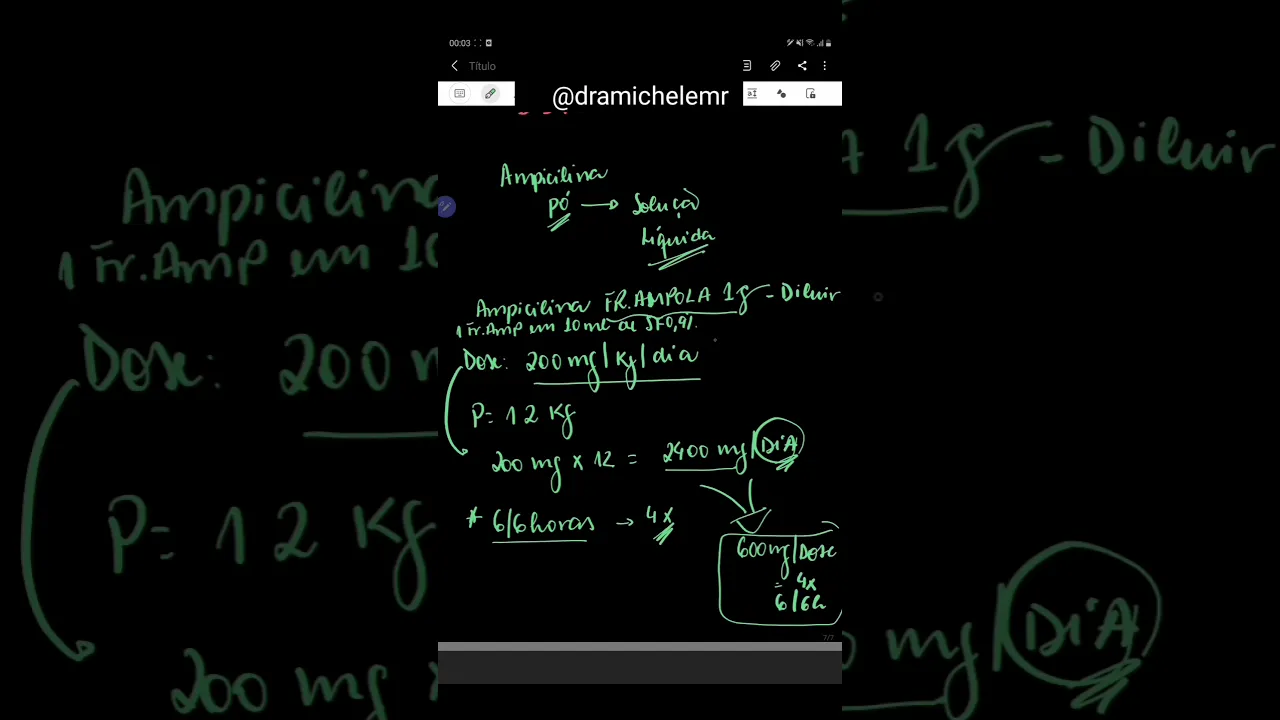 00:03
Título
@dramichelemr
Ampicilina
pó → Solução
Líquida
Ampicilina FR.AMPOLA 1g - Diluir
1 Fr.Amp em 10 ml de SF0,9%.
Dose: 200 mg/Kg/dia
P= 12 Kg
200 mg x 12 = 2400 mg/DIA
* 6/6horas → 4x
600mg/Dose
= 4x
6/6h
7/7
Ampicilina
1 Fr.Amp em 10
Dose: 200 m
P= 12 Kg
200 mg
A 1g - Diluir
0 mg/DIA